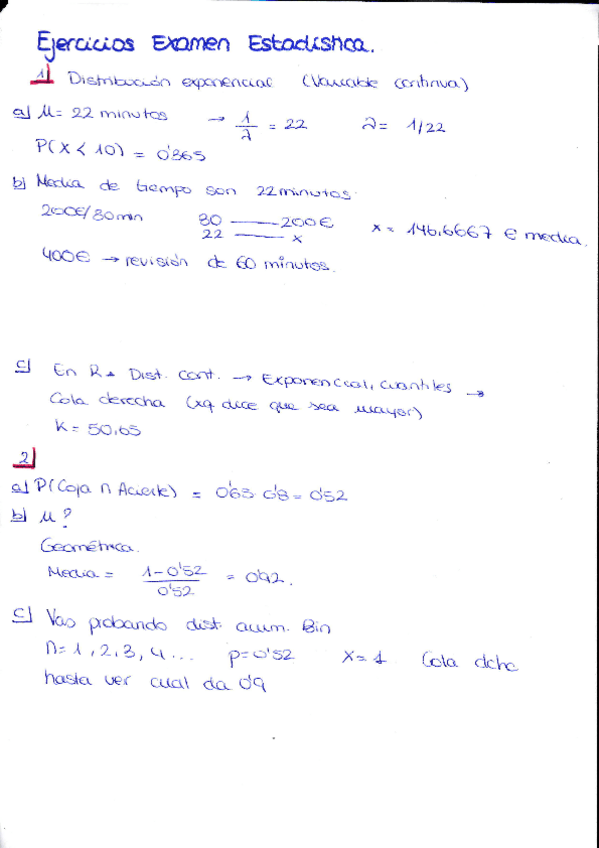 Ejercicios Examen Estadística.
1) Distribución exponencial (Variable continua)
a) μ = 22 minutos → 1/λ = 22 λ = 1/22
P(X < 10) = 0'365
b) Media de tiempo son 22 minutos.
200€/30min 30 —— 200€
22 —— x x = 146,6667 € media.
400€ → revisión de 60 minutos.
c) En R → Dist. Cont. → Exponencial, cuantiles →
Cola derecha (xq dice que sea mayor)
K = 50,65
2)
a) P(Coja ∩ Acierte) = 0'65 · 0'8 = 0'52
b) μ?
Geométrica.
Media = 1-0'52 / 0'52 = 0'92.
c) Vas probando dist. acum. Bin
n = 1, 2, 3, 4... p = 0'52 X = 1 Cola dcha
hasta ver cual da 0'9